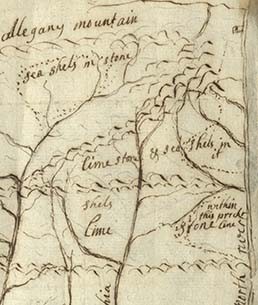 allegany mountain
sea shels in stone
lime stone & sea shels in it
shels
lime
within
this prickt
stone line
north river